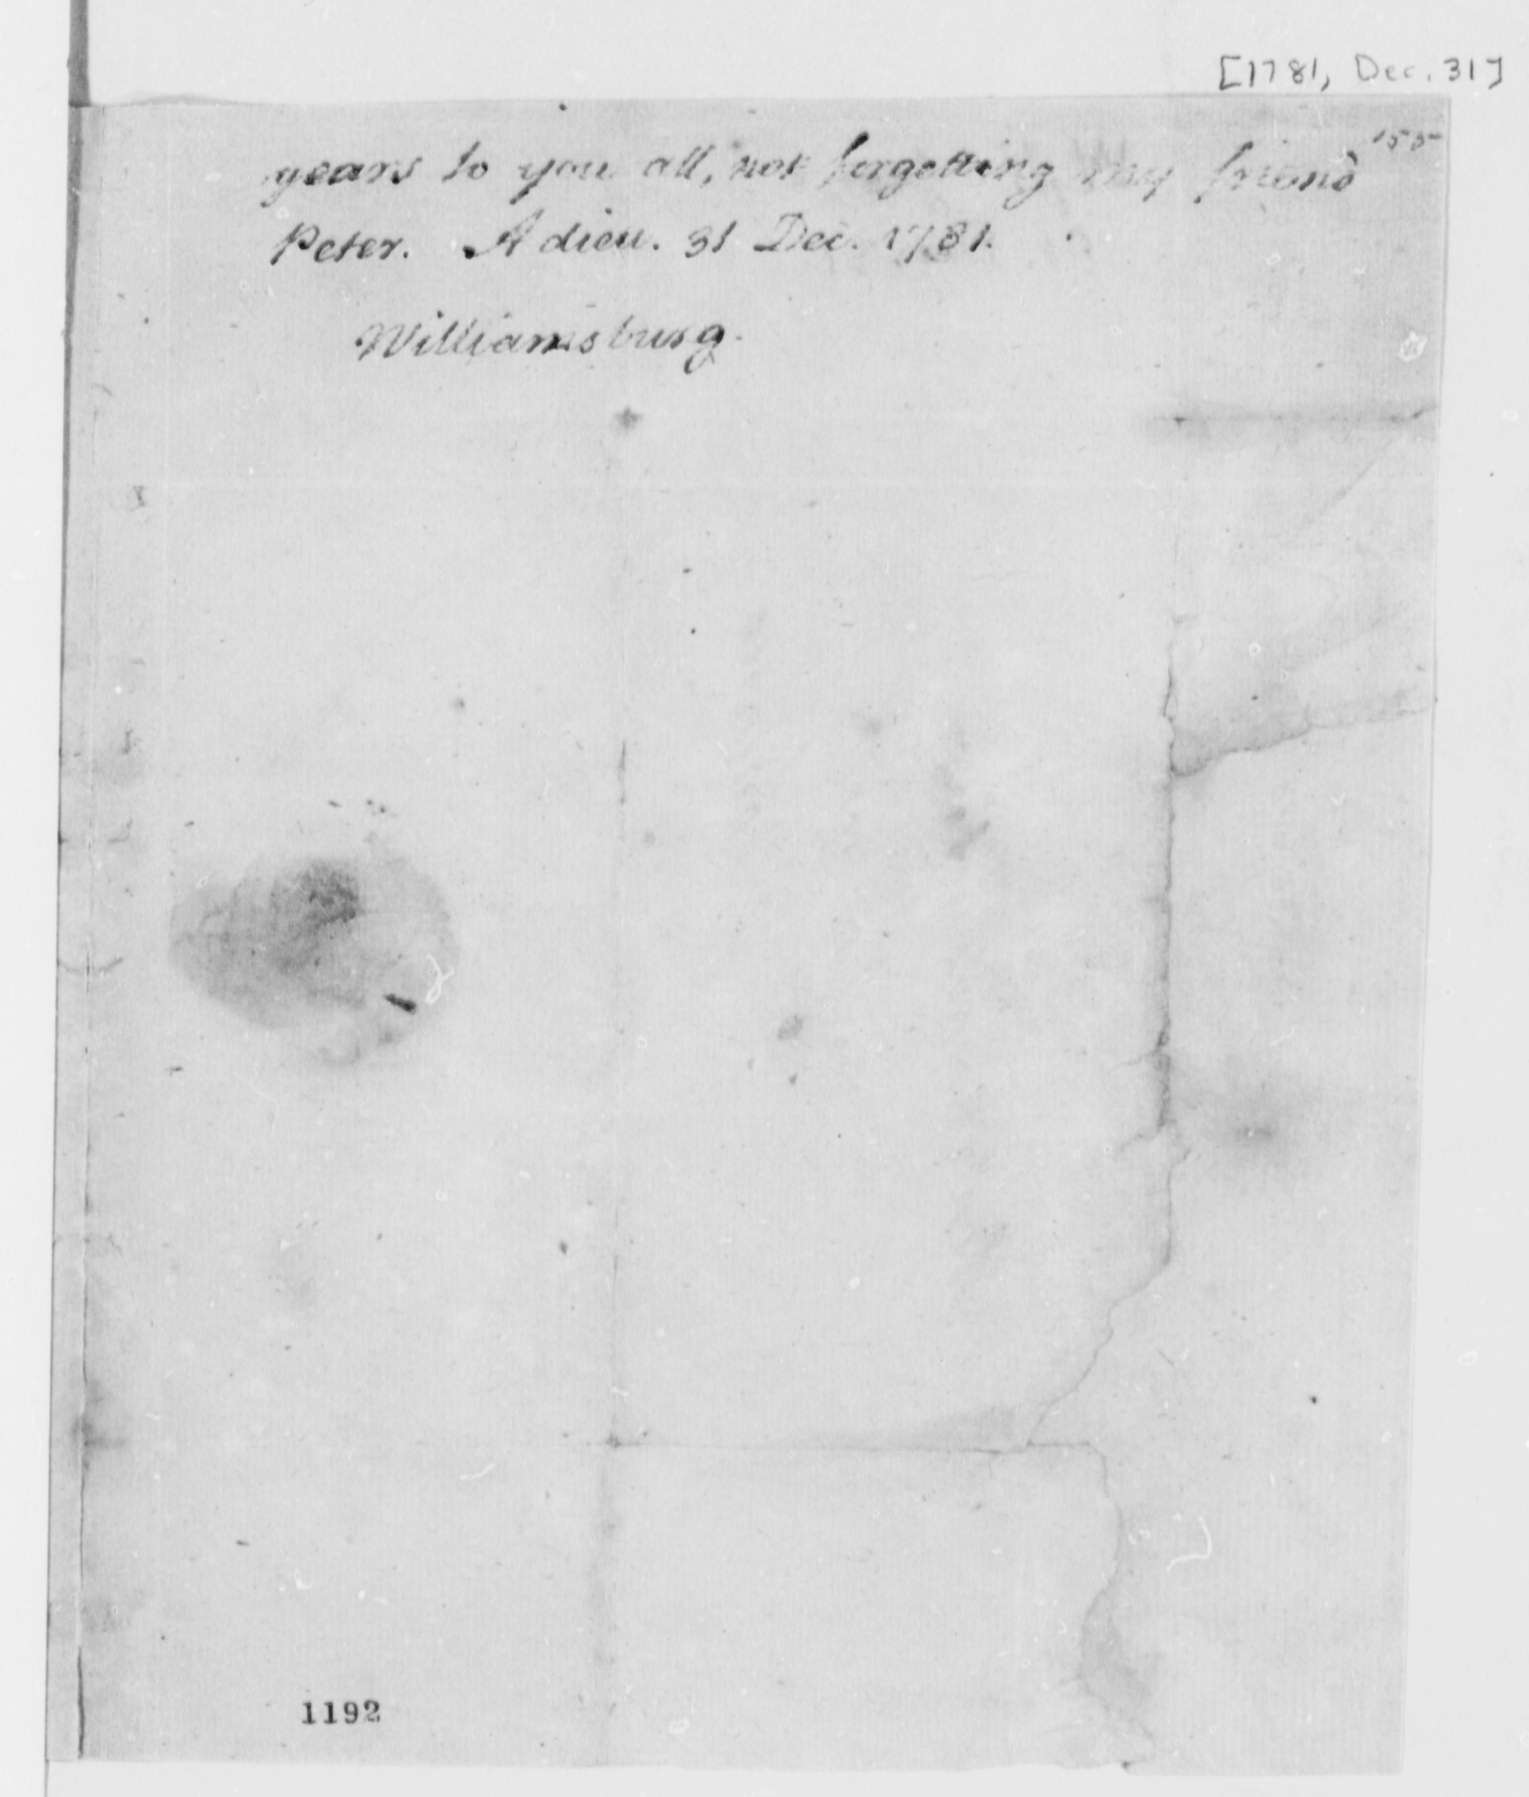 [1781, Dec. 31]
155
years to you all, not forgetting my friend
Peter. Adieu. 31 Dec. 1781.
Williamsburg.
1192